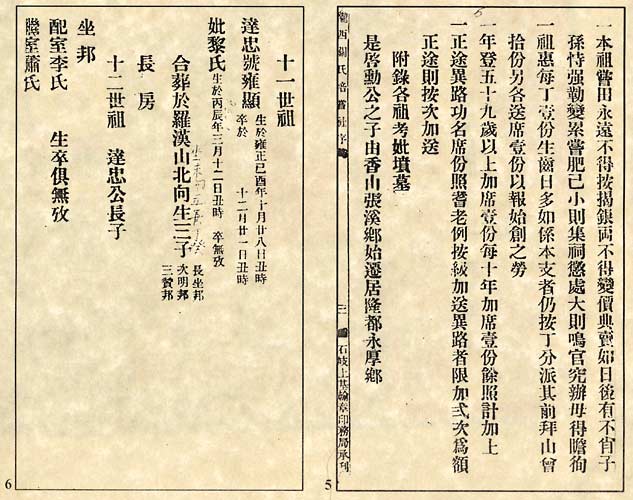 一本祖嘗田永遠不得按揭銀両不得變價典賣如日後有不肖子
孫恃强勒變累嘗肥己小則集祠懲處大則鳴官究辦毋得瞻徇
一祖惠每丁壹份生齒日多如係本支者仍按丁分派其前拜山曾
拾份另各送席壹份以報始創之勞
一年登五十九歲以上加席壹份每十年加席壹份餘照計加上
一正途異路功名席份照嘗老例按級加送異路者限加弍次爲額
正途則按次加送
附錄各祖考妣墳墓
是啓動公之子由香山張溪鄉始遷居隆都永厚鄉
西
氏
嘗
序
三
石岐上基
章印務局承刊
5
十一世祖
達忠號雍顯
生於雍正己酉年十月廿八日丑時
卒於 十二月廿一日丑時
妣黎氏
生於丙辰年三月十二日丑時 卒無攷
合葬於羅漢山北向生三子
長坐邦
次明邦
三贊邦
長房
十二世祖 達忠公長子
坐邦
配室李氏 生卒俱無攷
勝室蕭氏
6